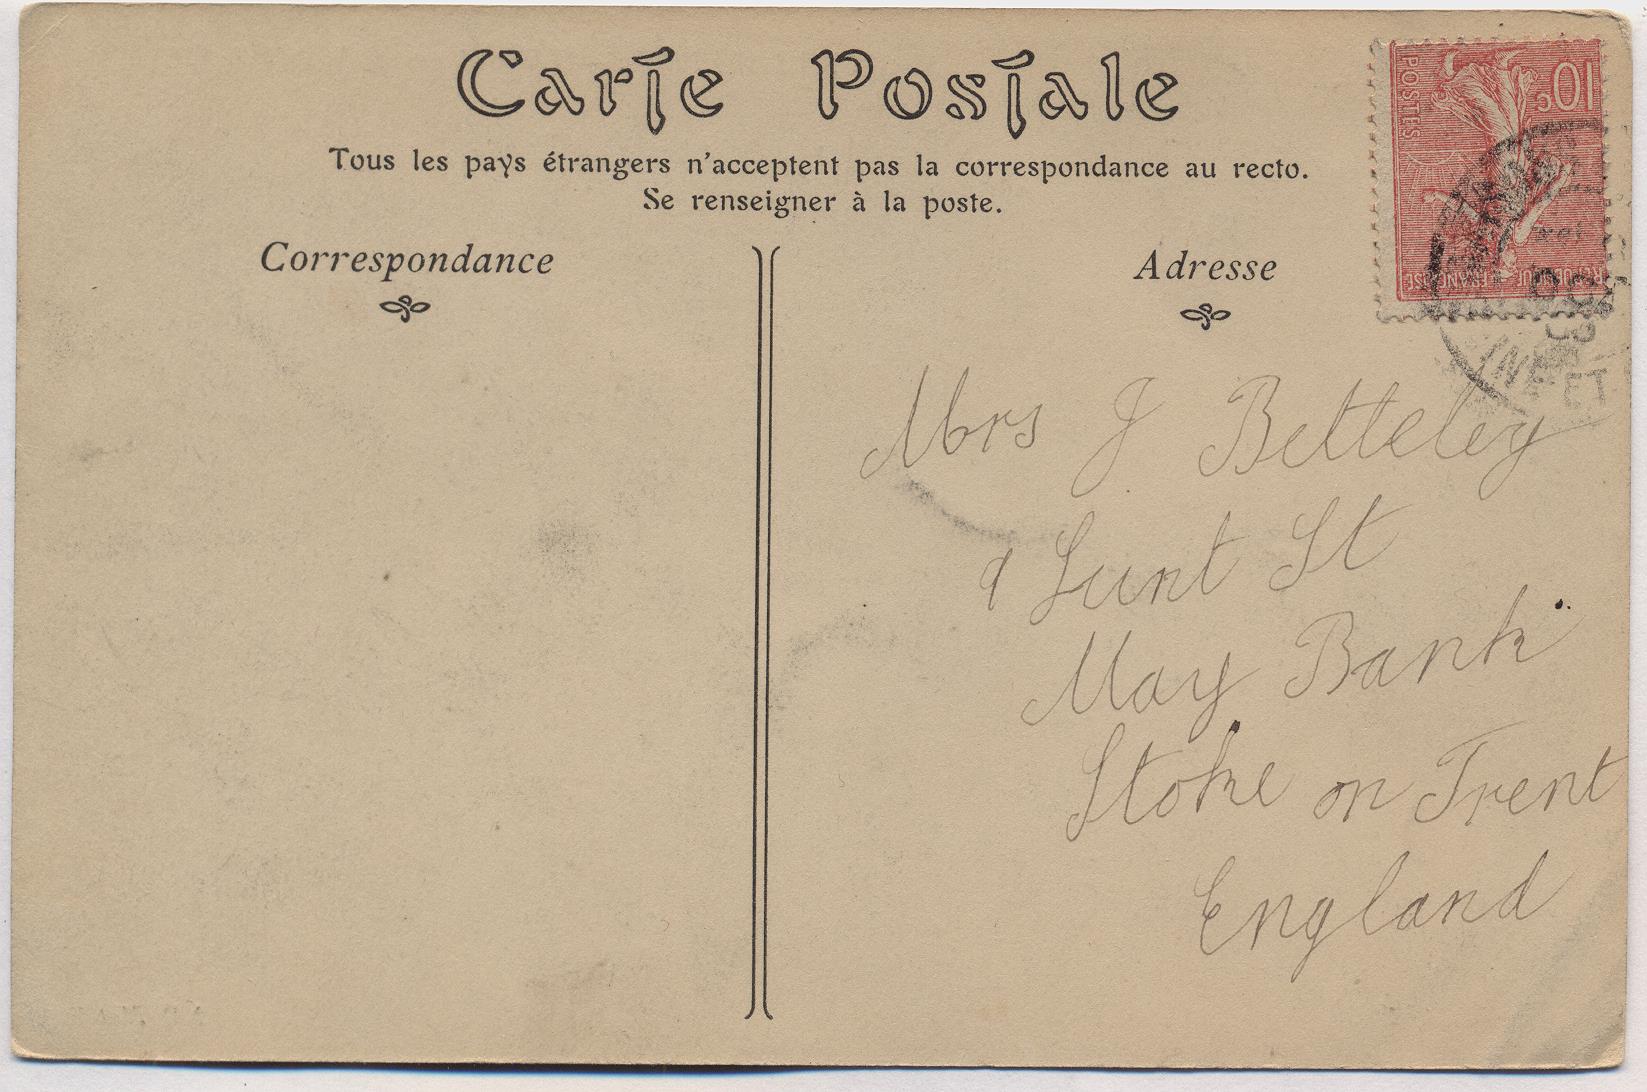 Carte Postale
Tous les pays étrangers n'acceptent pas la correspondance au recto.
Se renseigner à la poste.
Correspondance
Adresse
10c
POSTES
REPUBLIQUE FRANÇAISE
Mrs J Betteley
9 Lunt St
May Bank
Stoke on Trent
England